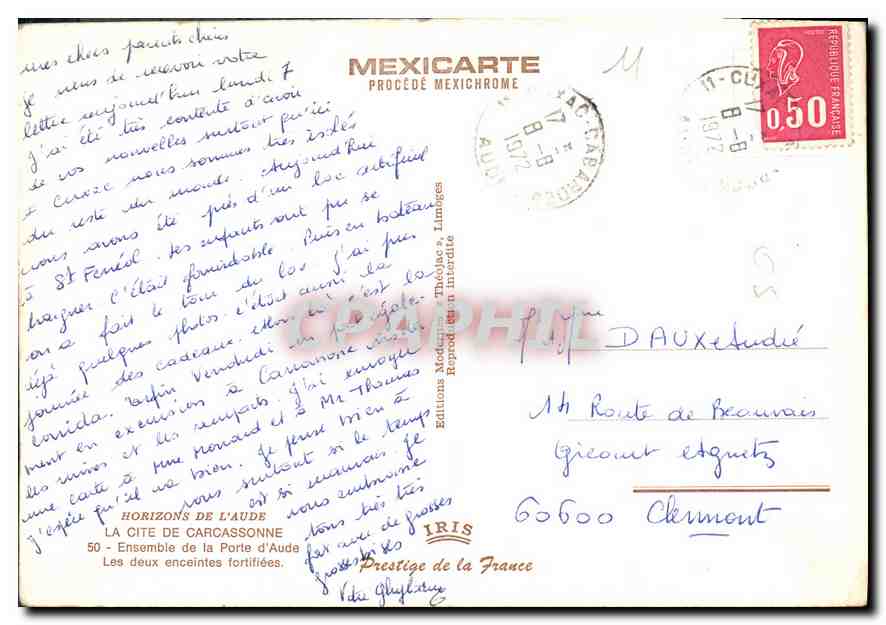 mes chers parents chéris
je viens de recevoir votre
lettre aujourd'hui lundi 7
J'ai été très contente d'avoir
de vos nouvelles surtout qu'ici
nous sommes très isolés
du reste du monde. Aujourd'hui
nous avons été près d'un lac artificiel
à St Feréol. Les enfants ont pu se
baigner c'était formidable. Puis en bateau
on a fait le tour du lac. J'ai pris
déjà quelques photos. c'était aussi la
journée des cadeaux. c'est la
corrida. Enfin Vendredi
ment en excursion à Carcassonne visiter
les mines et les remparts. J'ai envoyé
une carte à Mme Monard et à Mr Thomas
j'espère qu'il va bien. Je pense bien à
vous surtout si le temps
est si mauvais. Je
vous embrasse
tous très très
fort avec de grosses
grosses bises
Votre
MEXICARTE
PROCÉDÉ MEXICHROME
Editions Modernes « Théojac », Limoges
Reproduction interdite
HORIZONS DE L'AUDE
LA CITE DE CARCASSONNE
50 - Ensemble de la Porte d'Aude
Les deux enceintes fortifiées.
IRIS
Prestige de la France
11
CABARDES
17
8-8
1972
AUDE
11-CU
17
8-8
1972
RÉPUBLIQUE FRANÇAISE
0,50
DAUX André
14 Route de Beauvais
Gicourt Agnetz
60600 Clermont
CPAPHIL